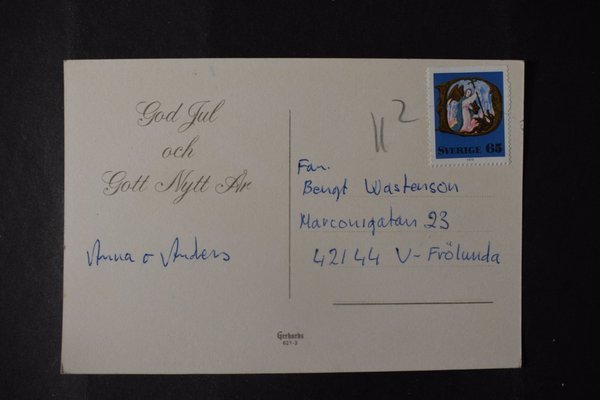 God Jul
och
Gott Nytt År
Anna o Anders
SVERIGE 65
Fam.
Bengt Wastenson
Marconigatan 23
42144 V-Frölunda
Gerhards
621-3